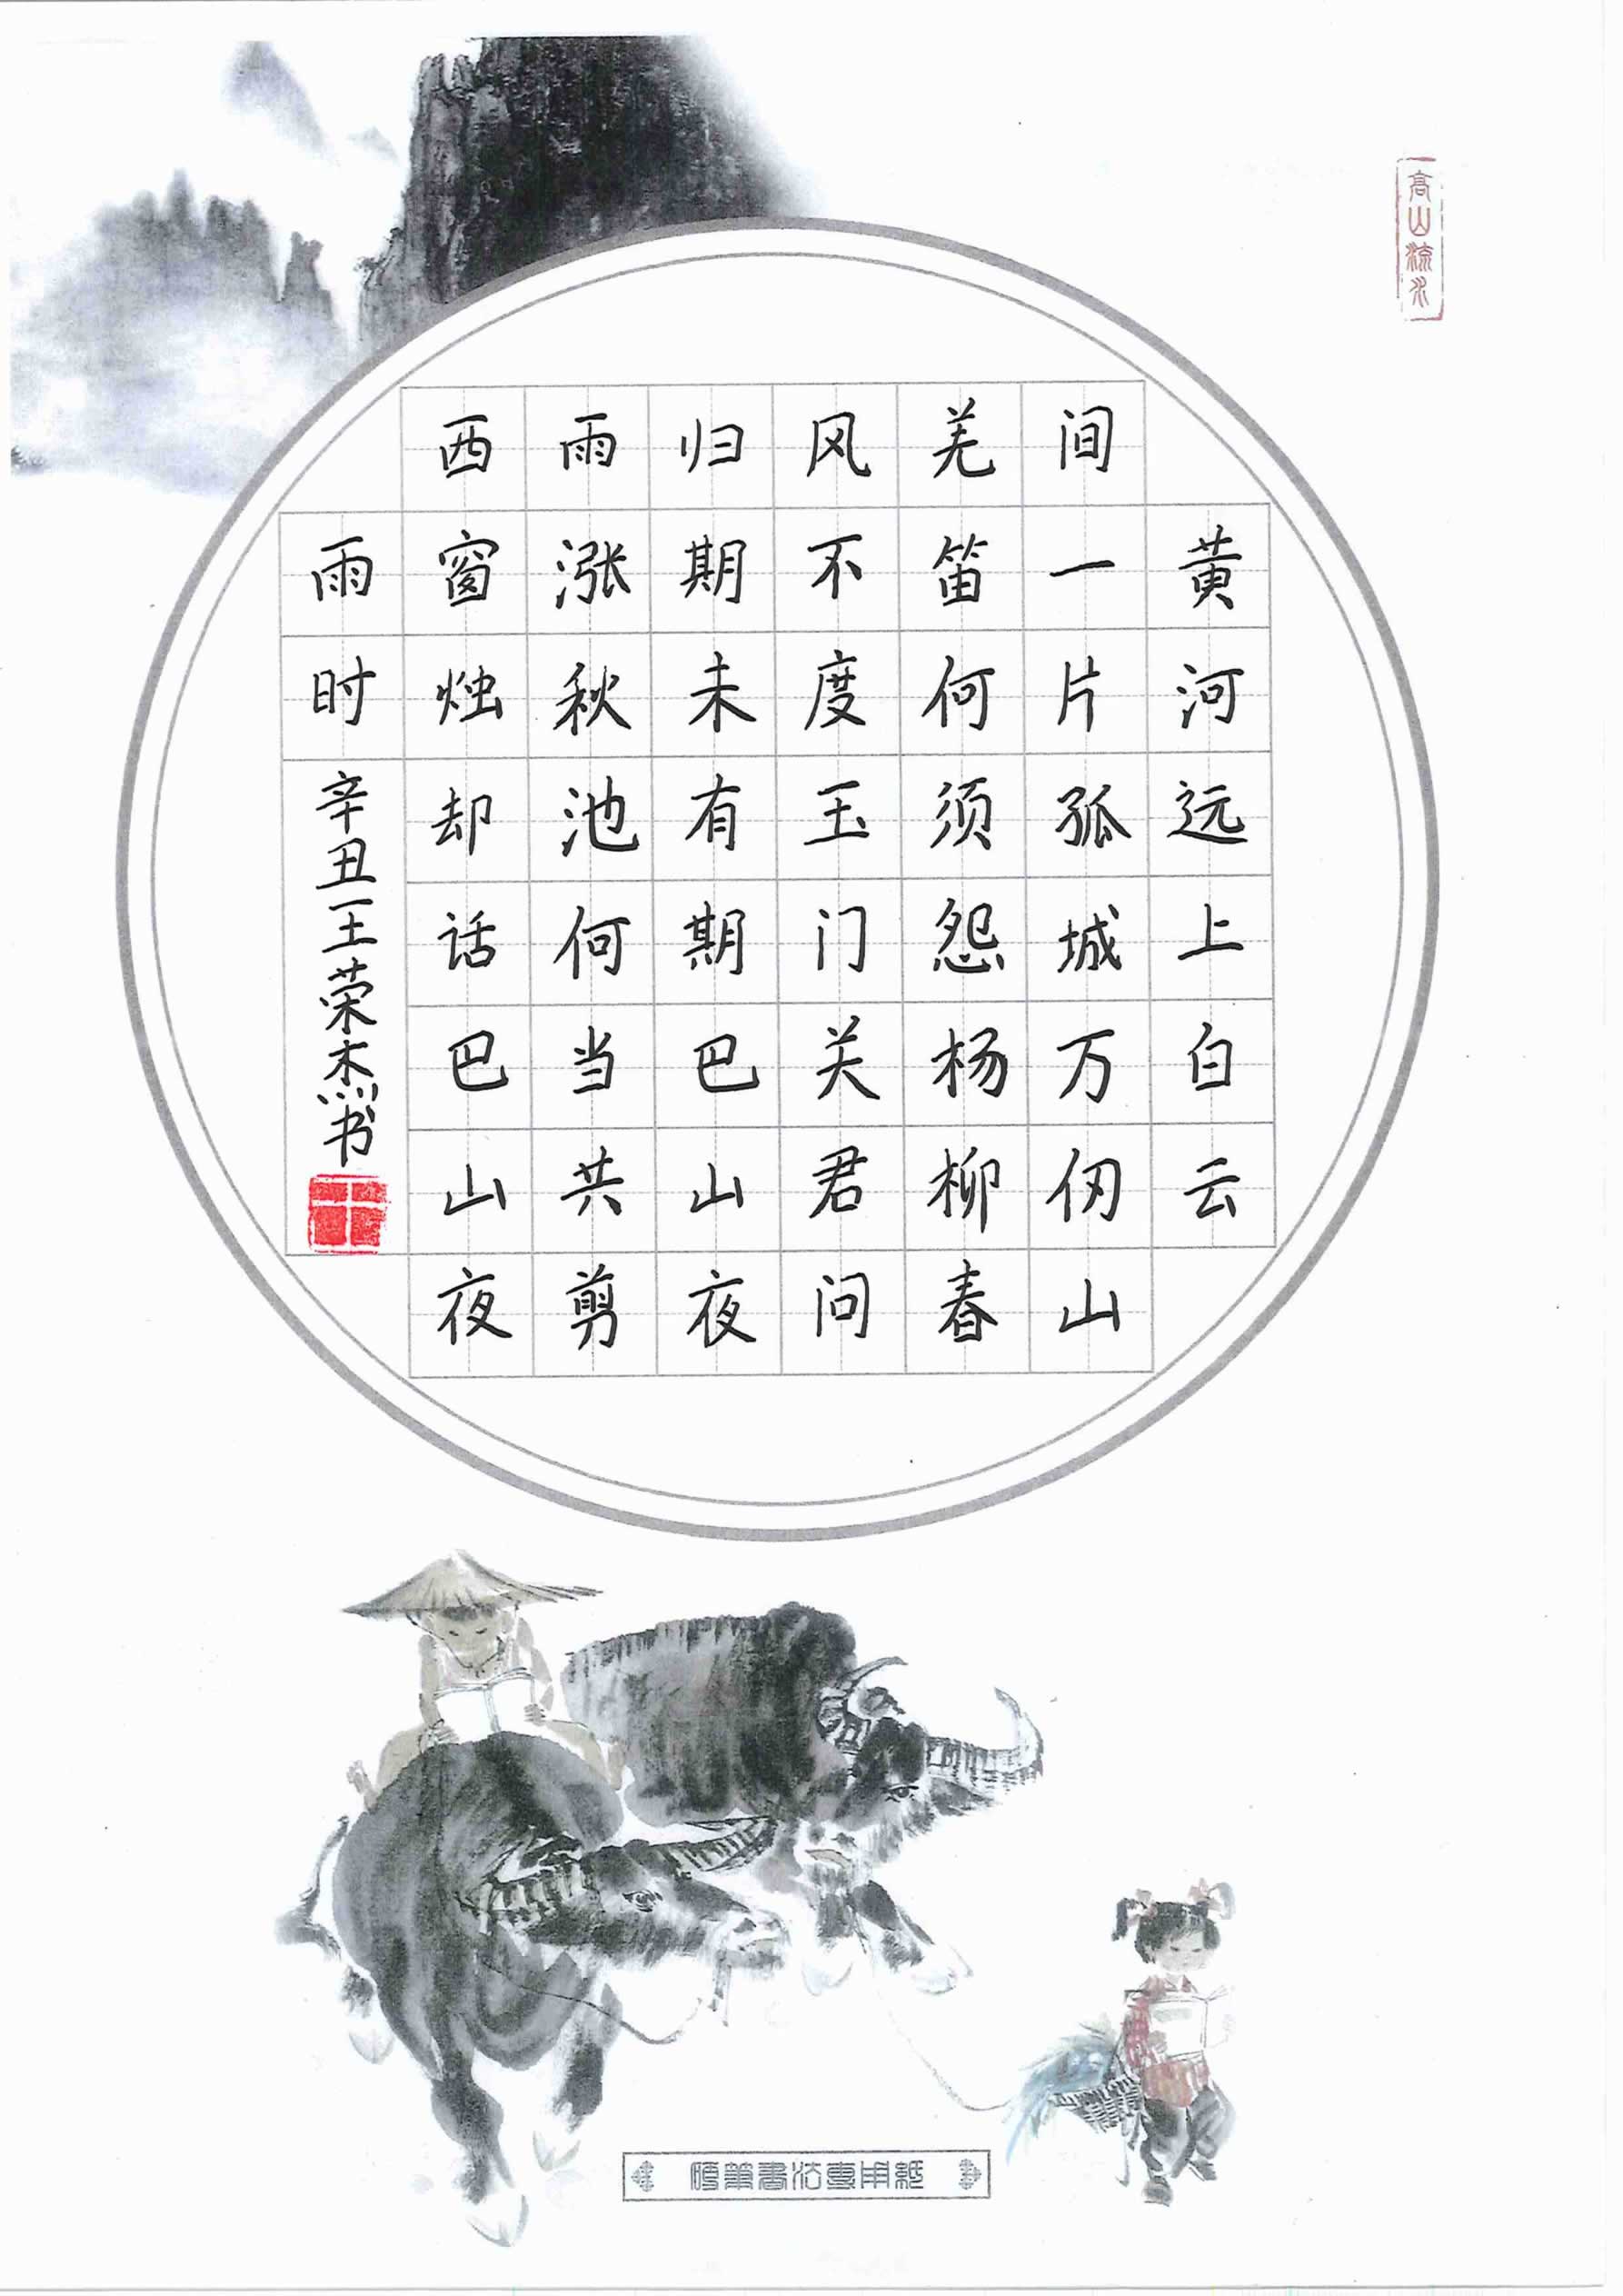 高山流水
黄河远上白云
间一片孤城万仞山
羌笛何须怨杨柳春
风不度玉门关君问
归期未有期巴山夜
雨涨秋池何当共剪
西窗烛却话巴山夜
雨时
辛丑王荣杰书
王
硬筆書法專用紙